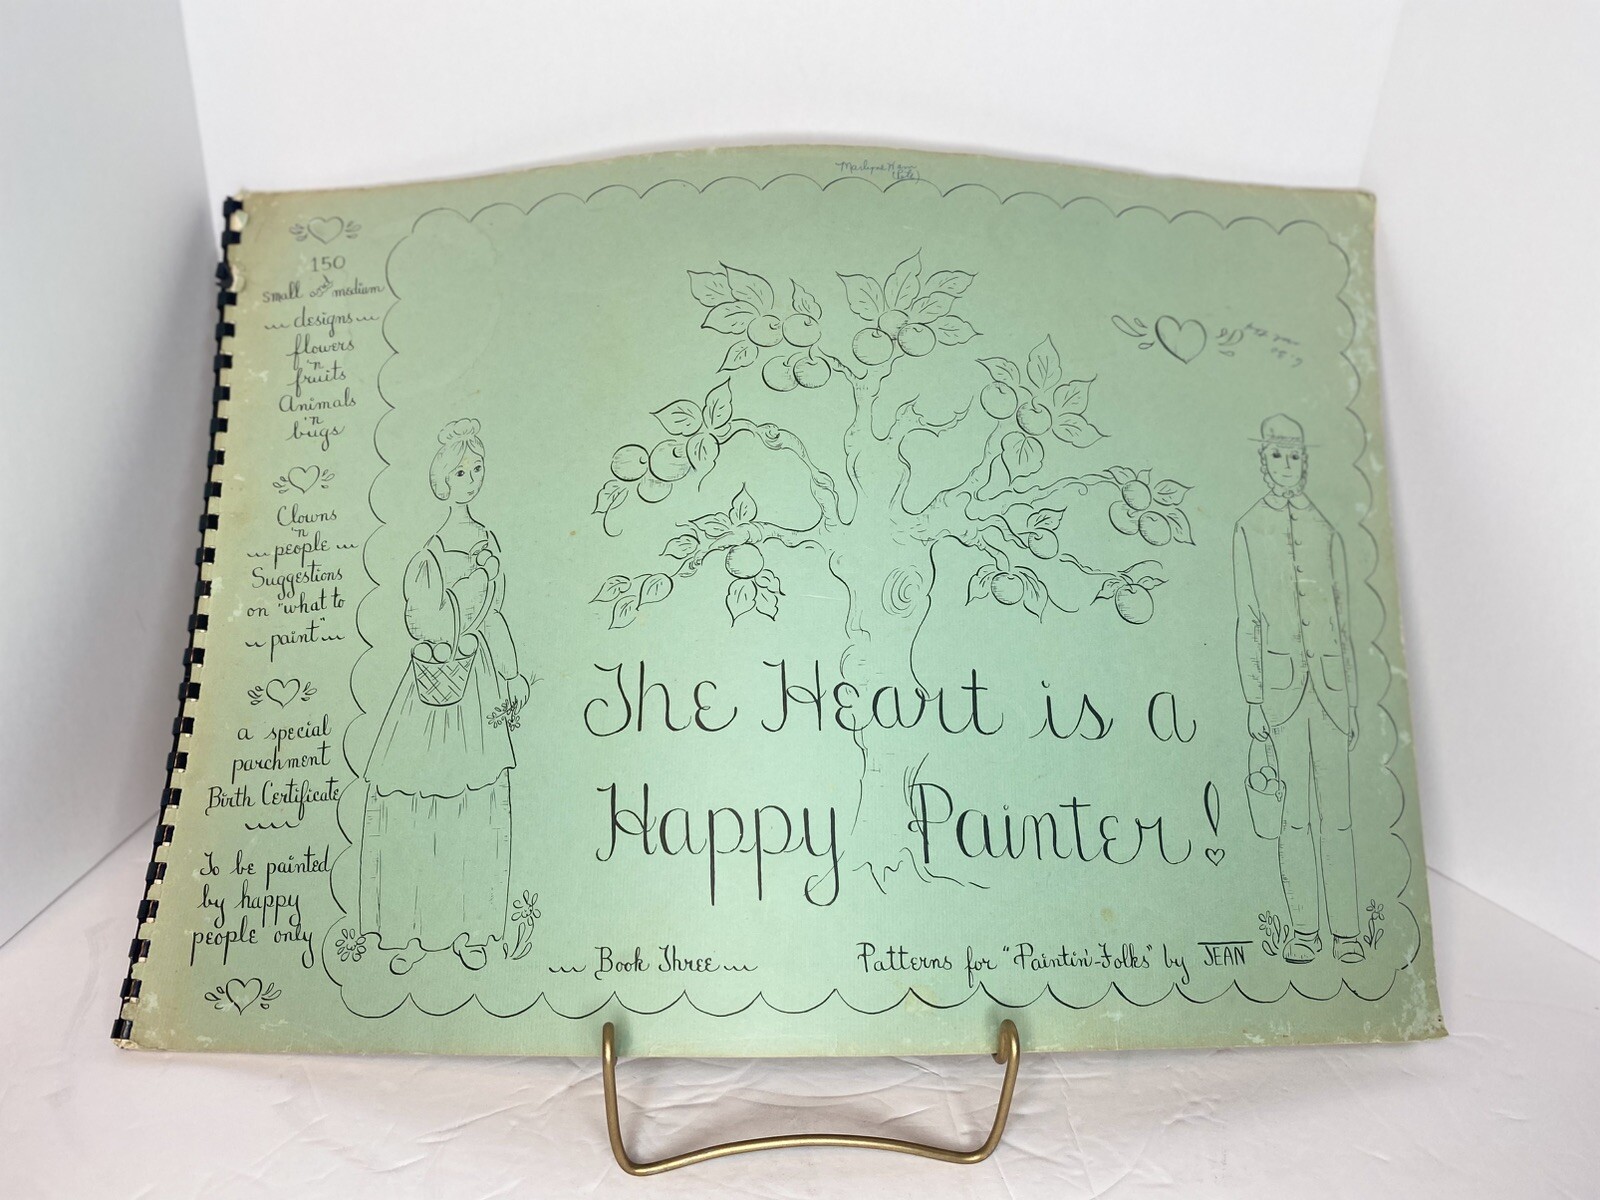 150
small and medium
designs
flowers
'n
fruits
Animals
'n
bugs
Clowns
'n
people
Suggestions
on "what to
paint"
a special
parchment
Birth Certificate
To be painted
by happy
people only
The Heart is a
Happy Painter!
Book Three
Patterns for "Paintin'-Folks" by JEAN